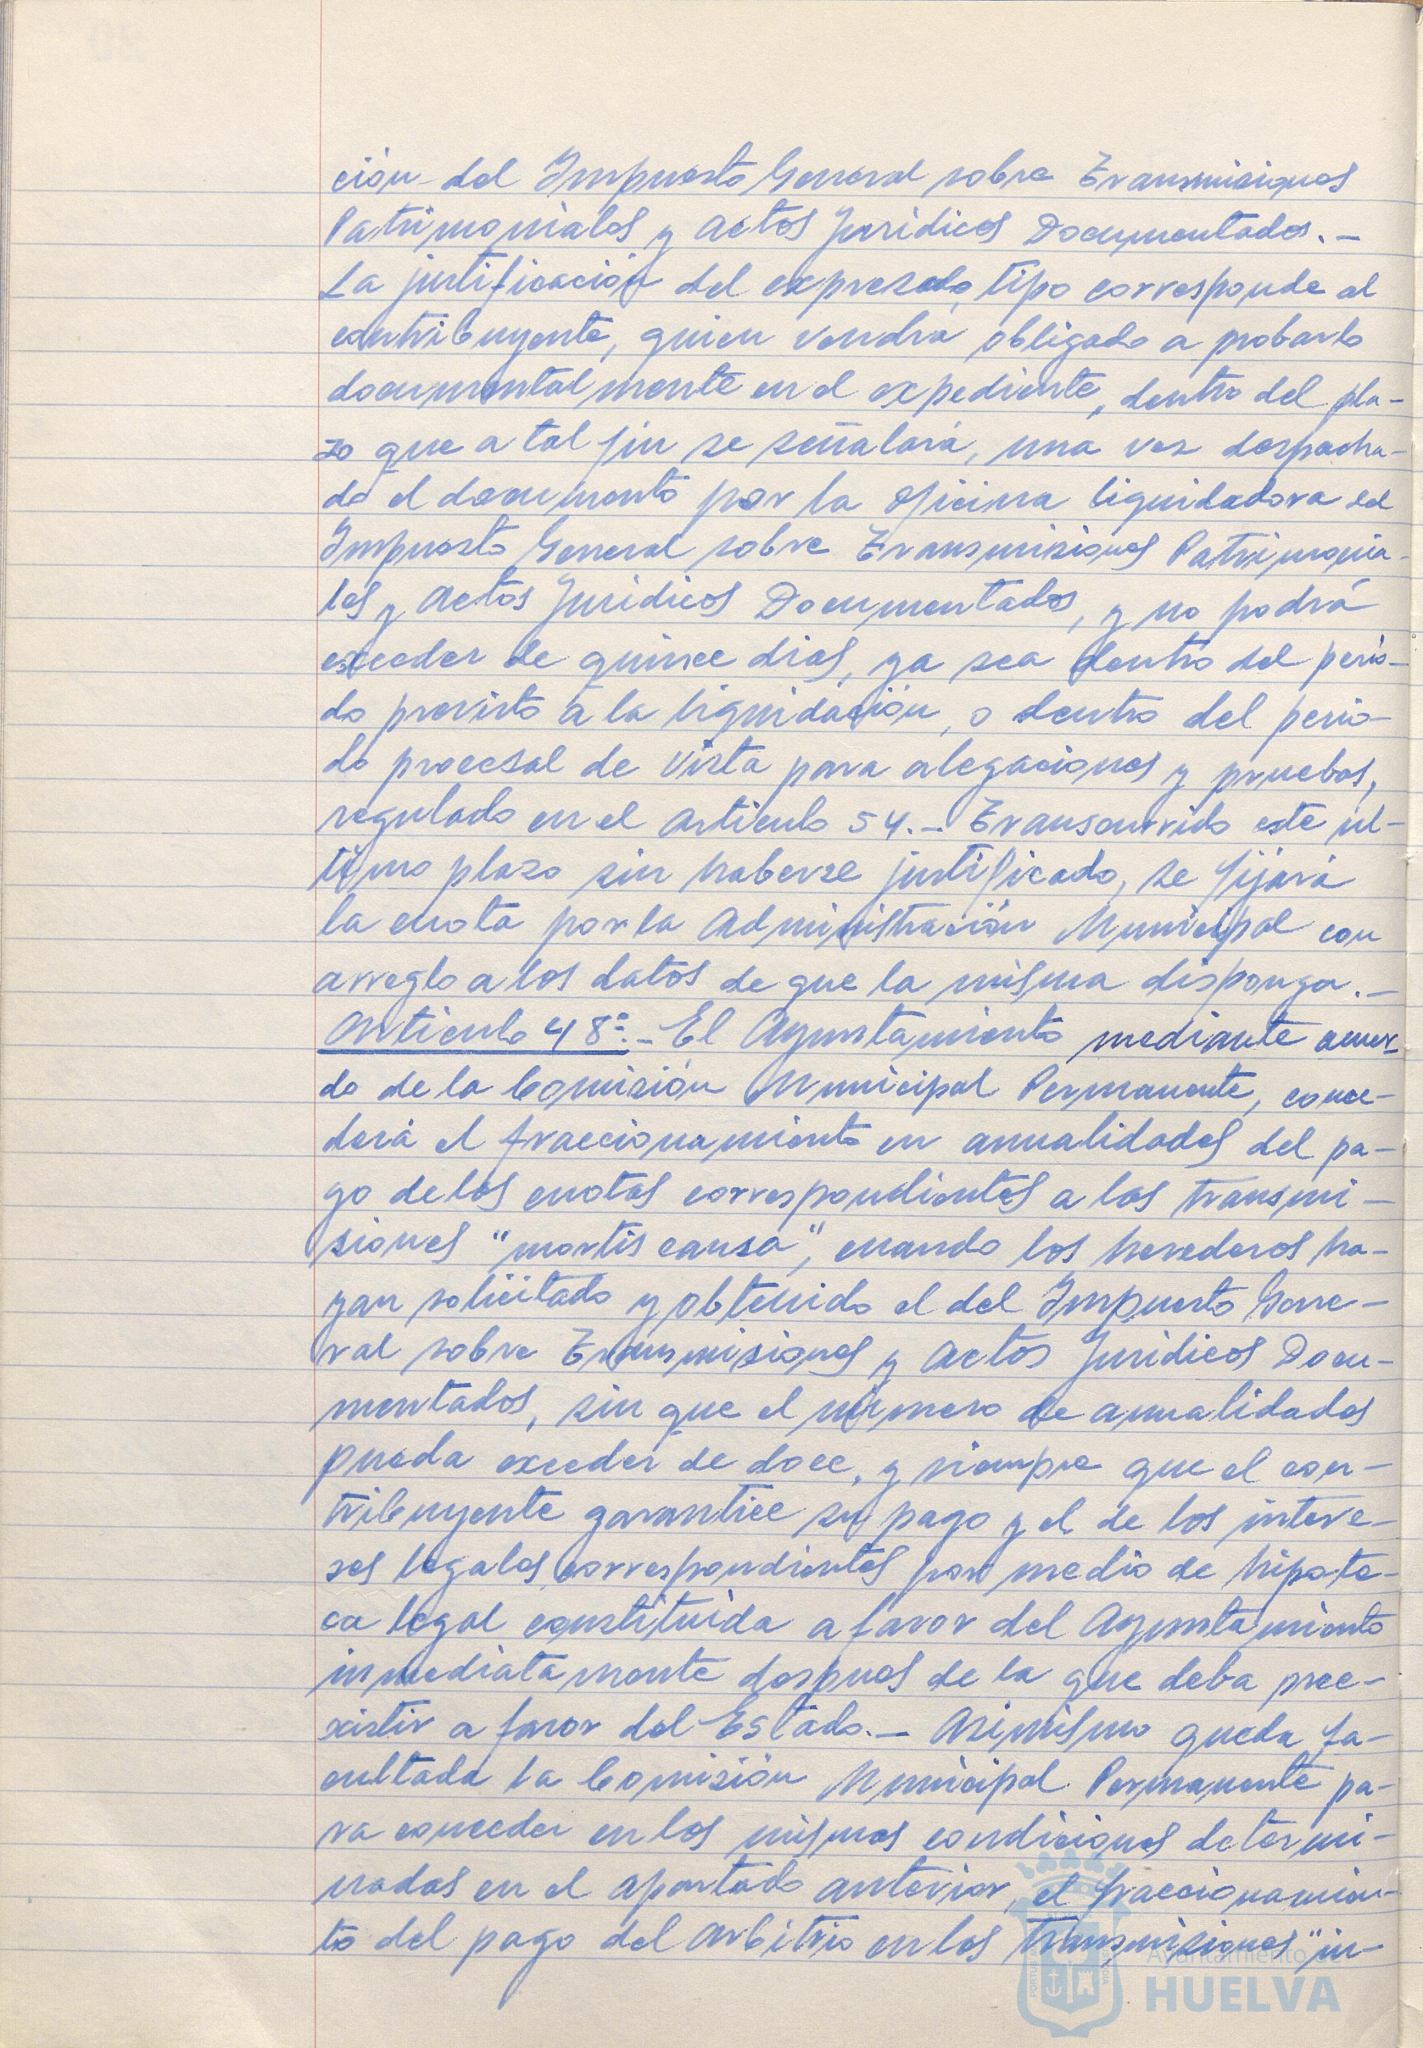 ción del Impuesto General sobre Transmisiones
Patrimoniales y Actos Jurídicos Documentados.-
La justificación del expresado tipo corresponde al
contribuyente, quien vendrá obligado a probarlo
documentalmente en el expediente, dentro del pla-
zo que a tal fin se señalará, una vez despacha-
do el documento por la oficina liquidadora del
Impuesto General sobre Transmisiones Patrimonia-
les y Actos Jurídicos Documentados, y no podrá
exceder de quince dias, ya sea dentro del perio-
do previsto a la liquidación, o dentro del perio-
do procesal de vista para alegaciones y pruebas,
regulado en el artículo 54.- Transcurrido este úl-
timo plazo sin haberse justificado, se fijará
la cuota por la Administración Municipal con
arreglo a los datos de que la misma disponga.-
Artículo 48º.- El Ayuntamiento mediante acuer-
do de la Comisión Municipal Permanente, conce-
derá el fraccionamiento en anualidades del pa-
go de las cuotas correspondientes a las transmi-
siones "mortis causa", cuando los herederos ha-
yan solicitado y obtenido el del Impuesto Gene-
ral sobre Transmisiones y Actos Jurídicos Docu-
mentados, sin que el número de anualidades
pueda exceder de doce, y siempre que el con-
tribuyente garantice su pago y el de los intere-
ses legales correspondientes por medio de hipote-
ca legal constituida a favor del Ayuntamiento
inmediatamente despues de la que deba pree-
xistir a favor del Estado.- Asimismo queda fa-
cultada la Comisión Municipal Permanente pa-
ra conceder en las mismas condiciones determi-
nadas en el apartado anterior, el fraccionamien-
to del pago del arbitrio en las transmisiones "in-
Ayuntamiento de
HUELVA